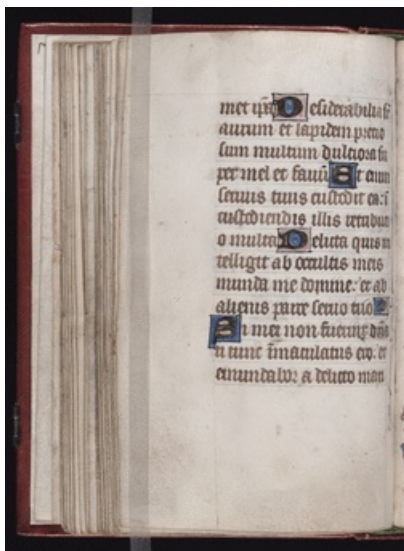 met ip̄a Desiderabilia sr̄
aurum et lapidem precio
sum multum dulciora su
per mel et fauū Et enim
seruus tuus custodit ea: ī
custodiendis illis retribuci
o multa Delicta quis in
telligit ab occultis meis
munda me domine: et ab
alienis parce seruo tuo
mei non fuerint dn̄a
ti tunc īmaculatus ero: et
emundabor a delicto maxi